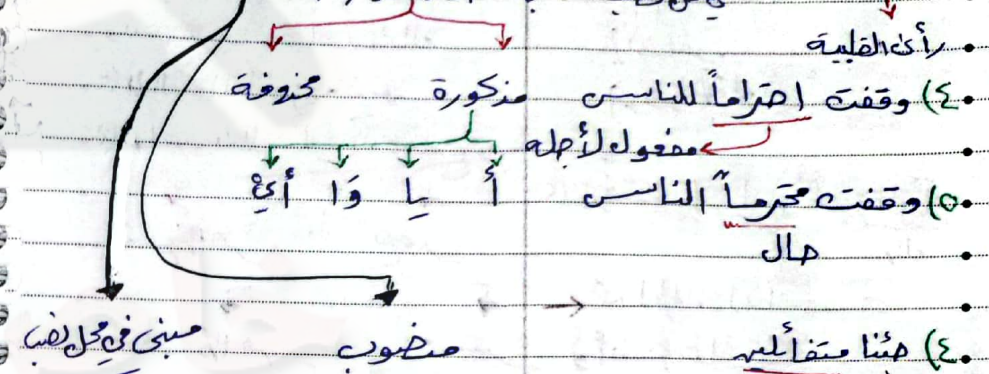 رأى القلبية
٤) وقفت احتراماً للناس
مفعول لأجله
٥) وقفت محترماً الناس
حال
٤) جئنا متفائلين
مذكورة محذوفة
أ يا وَا أيْ
منصوب مبني في محل نصب